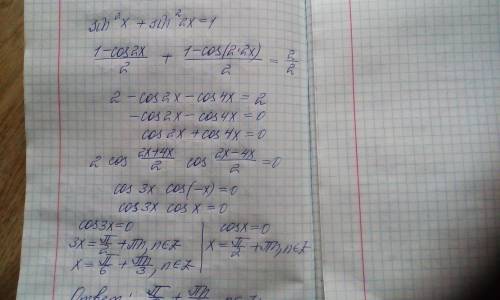 sin²x + sin²2x = 1
(1-cos2x)/2 + (1-cos(2·2x))/2 = 2/2
2 - cos2x - cos4x = 2
-cos2x - cos4x = 0
cos2x + cos4x = 0
2 cos (2x+4x)/2 cos (2x-4x)/2 = 0
cos3x cos(-x) = 0
cos3x cosx = 0
cos3x = 0 | cosx = 0
3x = π/2 + πn, n∈Z | x = π/2 + πn, n∈Z
x = π/6 + πn/3, n∈Z
Ответ: π/6 + πn/3, n∈Z